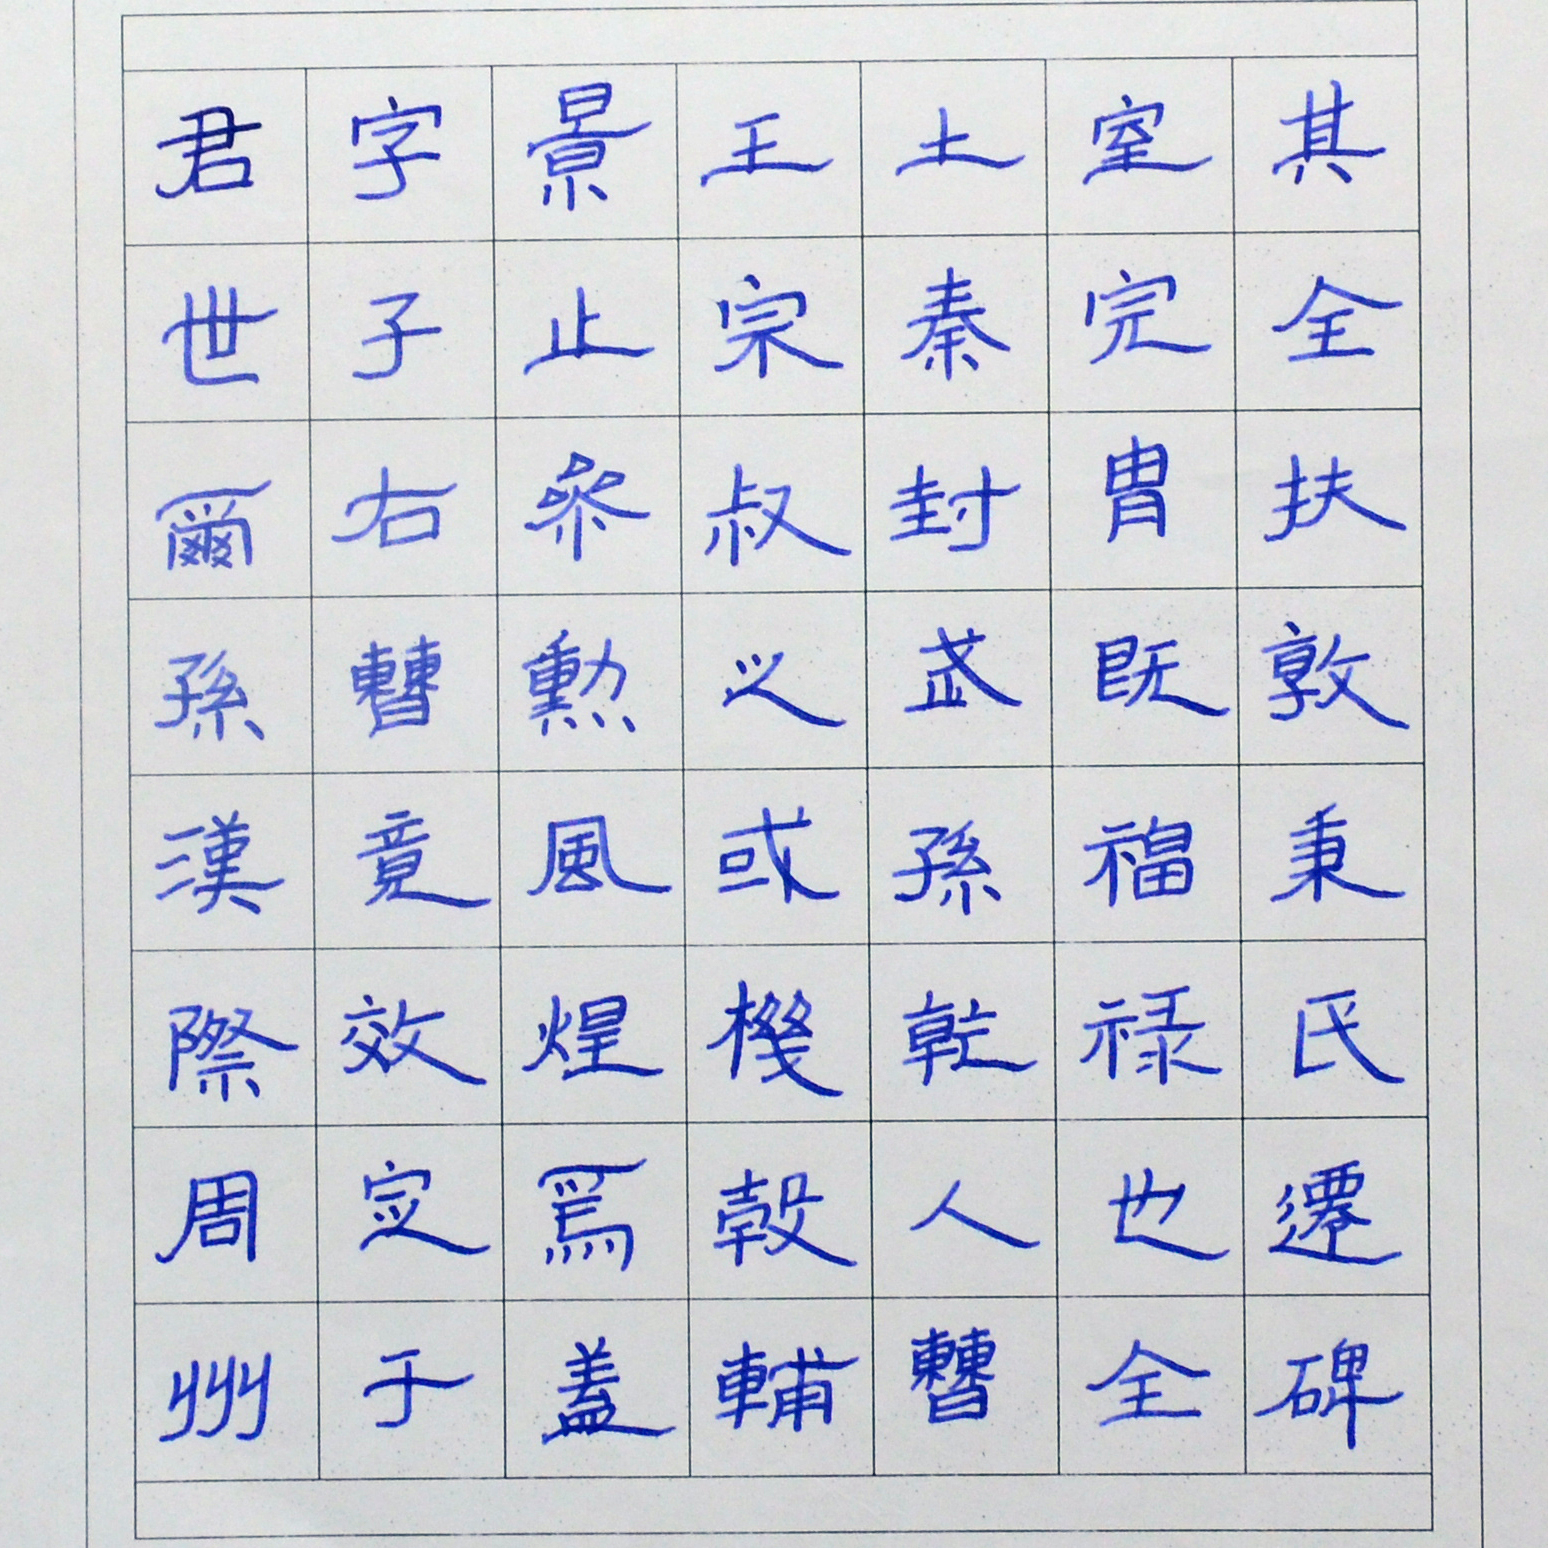 君字景王土室其
世子止宗秦完全
爾右參叔封胄扶
孫曹勳之武既敦
漢竟風或孫福秉
際效煌機乾禄氏
周定爲穀人也遷
州于蓋輔曹全碑